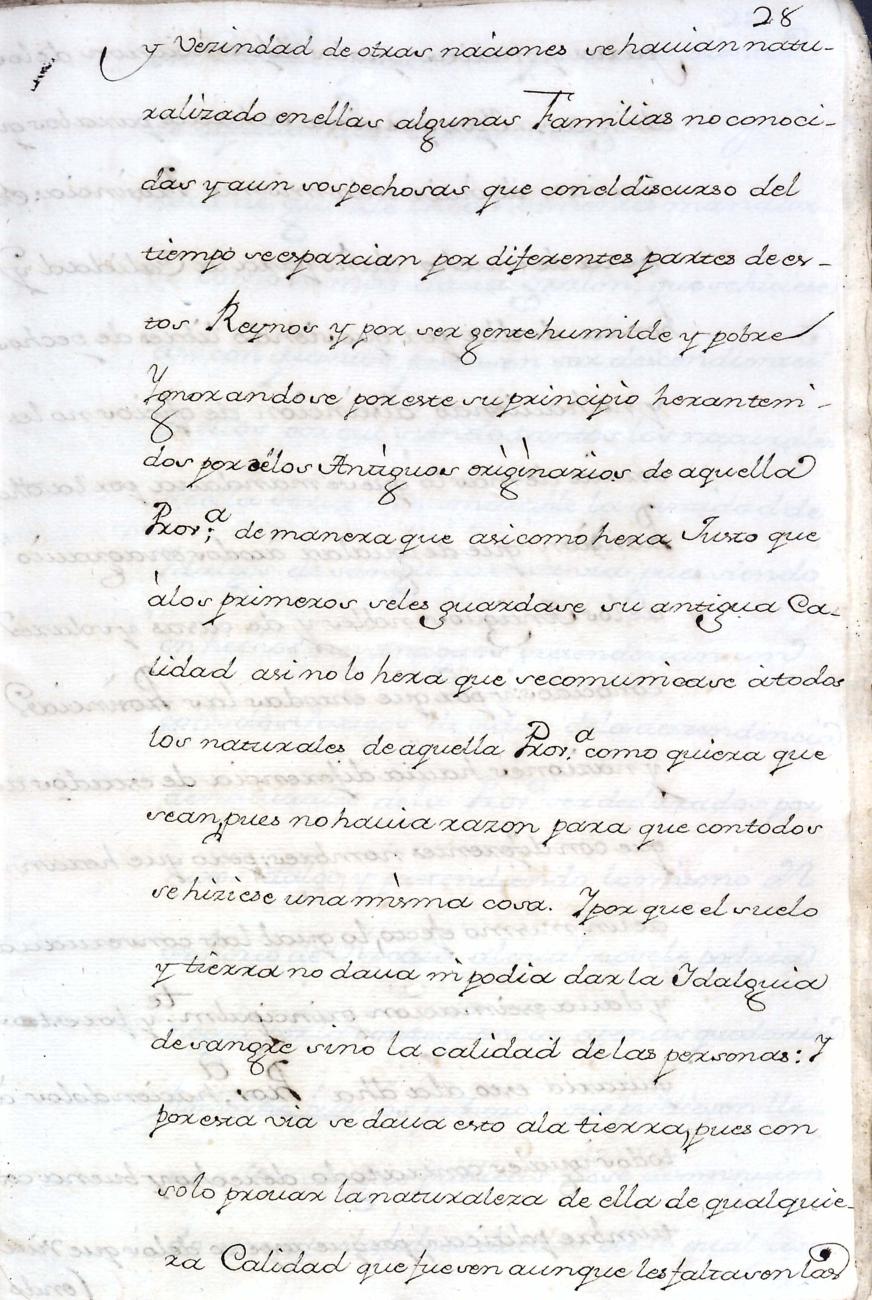 28
y Vezindad de otras naciones se hauian natu-
ralizado en ellas algunas Familias no conoci-
das y aun sospechosas que con el discurso del
tiempo se esparcian por diferentes partes de es-
tos Reynos y por ser gente humilde y pobre
Ygnorandose por este su principio heran teni-
dos por de los Antiguos originarios de aquella
Prov.ª de manera que asi como hera Justo que
à los primeros se les guardase su antigua Ca-
lidad asi no lo hera que se comunicase à todos
los naturales de aquella Prov.ª como quiera que
sean, pues no hauia razon para que con todos
se hiziese una misma cosa. Y por que el suelo
y tierra no daua ni podia dar la Idalguia
de sangre sino la calidad de las personas: Y
por esta via se daua esto a la tierra, pues con
solo provar la naturaleza de ella de qualquie-
ra Calidad que fuesen aunque les faltasen las